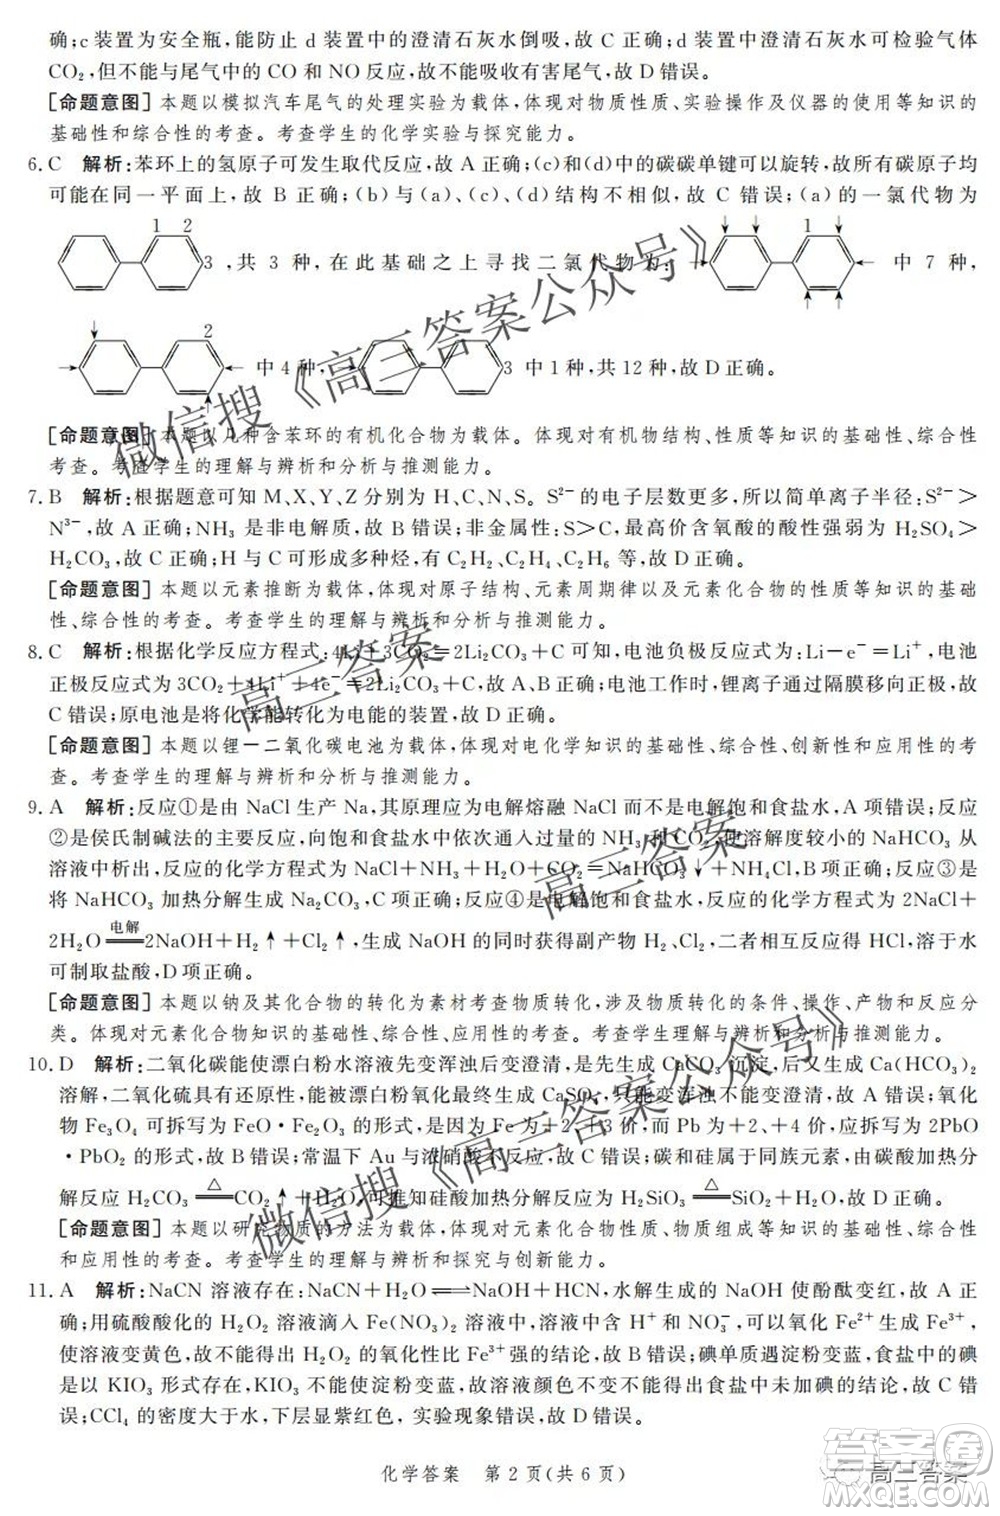 确;c装置为安全瓶,能防止d装置中的澄清石灰水倒吸,故C正确;d装置中澄清石灰水可检验气体
CO₂,但不能与尾气中的CO和NO反应,故不能吸收有害尾气,故D错误。
[命题意图]本题以模拟汽车尾气的处理实验为载体,体现对物质性质、实验操作及仪器的使用等知识的
基础性和综合性的考查。考查学生的化学实验与探究能力。
6.C 解析:苯环上的氢原子可发生取代反应,故A正确;(c)和(d)中的碳碳单键可以旋转,故所有碳原子均
可能在同一平面上,故B正确;(b)与(a)、(c)、(d)结构不相似,故C错误;(a)的一氯代物为
1 2 3,共3种,在此基础之上寻找二氯代物为: 1 中7种,
2 中4种, 3中1种,共12种,故D正确。
[命题意图]本题以几种含苯环的有机化合物为载体。体现对有机物结构、性质等知识的基础性、综合性
考查。考查学生的理解与辨析和分析与推测能力。
7.B 解析:根据题意可知M、X、Y、Z分别为H、C、N、S。S²⁻的电子层数更多,所以简单离子半径:S²⁻>
N³⁻,故A正确;NH₃是非电解质,故B错误;非金属性:S>C,最高价含氧酸的酸性强弱为H₂SO₄>
H₂CO₃,故C正确;H与C可形成多种烃,有C₂H₂、C₂H₄、C₂H₆等,故D正确。
[命题意图]本题以元素推断为载体,体现对原子结构、元素周期律以及元素化合物的性质等知识的基础
性、综合性的考查。考查学生的理解与辨析和分析与推测能力。
8.C 解析:根据化学反应方程式:4Li+3CO₂=2Li₂CO₃+C可知,电池负极反应式为:Li-e⁻=Li⁺,电池
正极反应式为3CO₂+4Li⁺+4e⁻=2Li₂CO₃+C,故A、B正确;电池工作时,锂离子通过隔膜移向正极,故
C错误;原电池是将化学能转化为电能的装置,故D正确。
[命题意图]本题以锂一二氧化碳电池为载体,体现对电化学知识的基础性、综合性、创新性和应用性的考
查。考查学生的理解与辨析和分析与推测能力。
9.A 解析:反应①是由NaCl生产Na,其原理应为电解熔融NaCl而不是电解饱和食盐水,A项错误;反应
②是侯氏制碱法的主要反应,向饱和食盐水中依次通入足量的NH₃和CO₂,使溶解度较小的NaHCO₃从
溶液中析出,反应的化学方程式为NaCl+NH₃+H₂O+CO₂=NaHCO₃↓+NH₄Cl,B项正确;反应③是
将NaHCO₃加热分解生成Na₂CO₃,C项正确;反应④是电解饱和食盐水,反应的化学方程式为2NaCl+
2H₂O 电解 2NaOH+H₂↑+Cl₂↑,生成NaOH的同时获得副产物H₂、Cl₂,二者相互反应得HCl,溶于水
可制取盐酸,D项正确。
[命题意图]本题以钠及其化合物的转化为素材考查物质转化,涉及物质转化的条件、操作、产物和反应分
类。体现对元素化合物知识的基础性、综合性、应用性的考查。考查学生理解与辨析和分析与推测能力。
10.D 解析:二氧化碳能使漂白粉水溶液先变浑浊后变澄清,是先生成CaCO₃沉淀,后又生成Ca(HCO₃)₂
溶解,二氧化硫具有还原性,能被漂白粉氧化最终生成CaSO₄,只能变浑浊不能变澄清,故A错误;有变
价的Fe₃O₄可拆写为FeO·Fe₂O₃的形式,是因为Fe为+2、+3价;而Pb为+2、+4价,应拆写为2PbO
·PbO₂的形式,故B错误;常温下Au与浓硝酸不反应,故C错误;碳和硅属于同族元素,由碳酸加热分
解反应H₂CO₃ △ CO₂↑+H₂O,可推知硅酸加热分解反应为H₂SiO₃ △ SiO₂+H₂O,故D正确。
[命题意图]本题以研究物质的方法为载体,体现对元素化合物性质、物质组成等知识的基础性、综合性
和应用性的考查。考查学生的理解与辨析和探究与创新能力。
11.A 解析:NaCN溶液存在:NaCN+H₂O⇌NaOH+HCN,水解生成的NaOH使酚酞变红,故A正
确;用硫酸酸化的H₂O₂溶液滴入Fe(NO₃)₂溶液中,溶液中含有H⁺和NO₃⁻,可以氧化Fe²⁺生成Fe³⁺
使溶液变黄色,故不能得出H₂O₂的氧化性比Fe³⁺强的结论,故B错误;碘单质遇淀粉变蓝,食盐中的碘
是以KIO₃形式存在,KIO₃不能使淀粉变蓝,故溶液颜色不变不能得出食盐中未加碘的结论,故C错
误;CCl₄的密度大于水,下层显紫红色,实验现象错误,故D错误。
化学答案 第2页(共6页)
微信搜《高三答案公众号》
高三答案
高三答案
微信搜《高三答案公众号》
高三答案
MXQE.COM